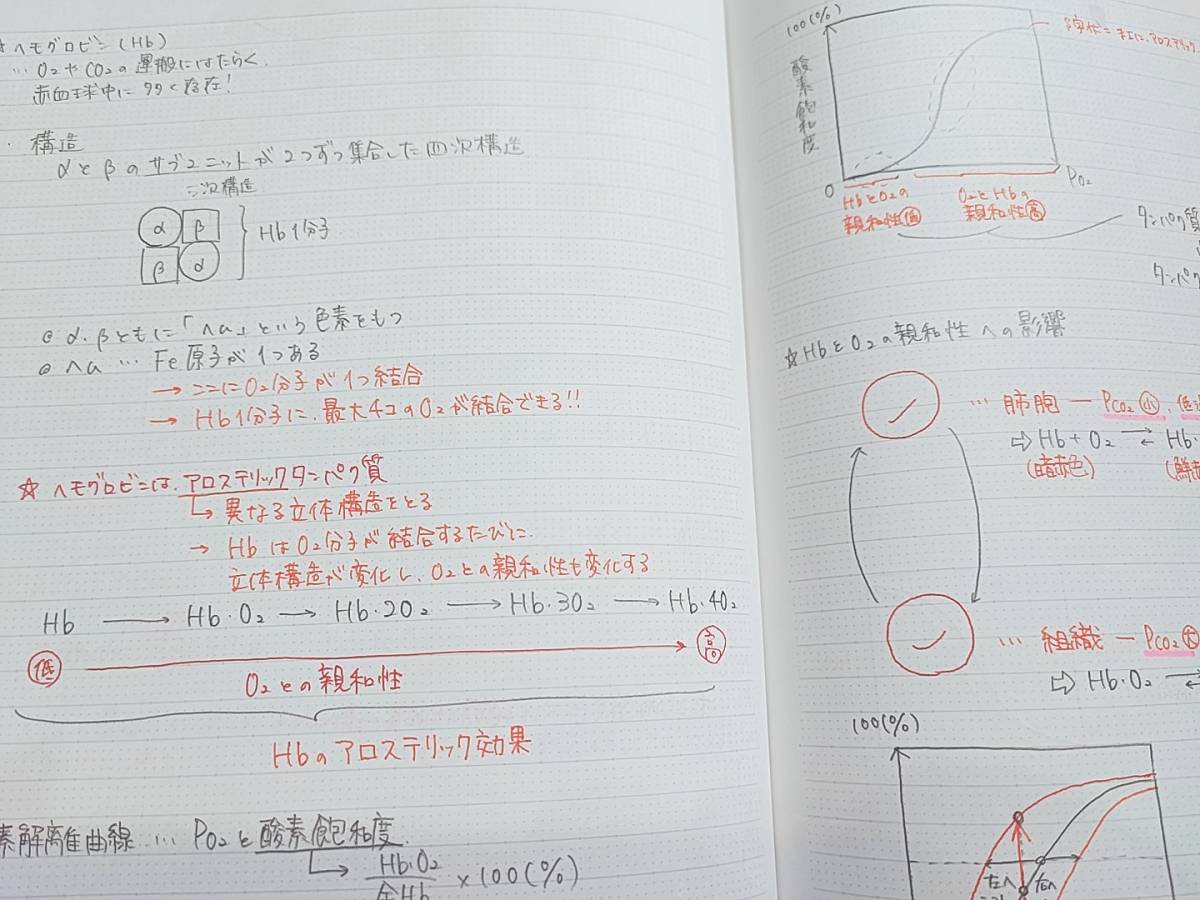 ☆ヘモグロビン(Hb)
… O₂やCO₂の運搬にはたらく.
赤血球中に多く存在!
・構造
αとβのサブユニットが2つずつ集合した四次構造
三次構造
α β
β α
Hb1分子
◎ α.βともに「ヘム」という色素をもつ
◎ ヘム … Fe原子が1つある
→ ここにO₂分子が1つ結合
→ Hb1分子に、最大4コのO₂が結合できる!!
☆ ヘモグロビンは、アロステリックタンパク質
↳ 異なる立体構造をとる
→ HbはO₂分子が結合するたびに、
立体構造が変化し、O₂との親和性も変化する
Hb → Hb・O₂ → Hb・2O₂ → Hb・3O₂ → Hb・4O₂
低 → 高
O₂との親和性
Hbのアロステリック効果
素解離曲線 … PO₂と酸素飽和度.
↳ Hb・O₂ / 全Hb × 100(%)
100(%)
酸素飽和度
0
PO₂
HbとO₂の親和性低
O₂とHbの親和性高
タンパク質
タンパク
☆HbとO₂の親和性への影響
… 肺胞 ー PCO₂ 小、低
⇨ Hb + O₂ ⇄ Hb・
(暗赤色) (鮮
… 組織 ー PCO₂ 大
⇨ Hb・O₂ ⇄
100(%)
左へ 右へ